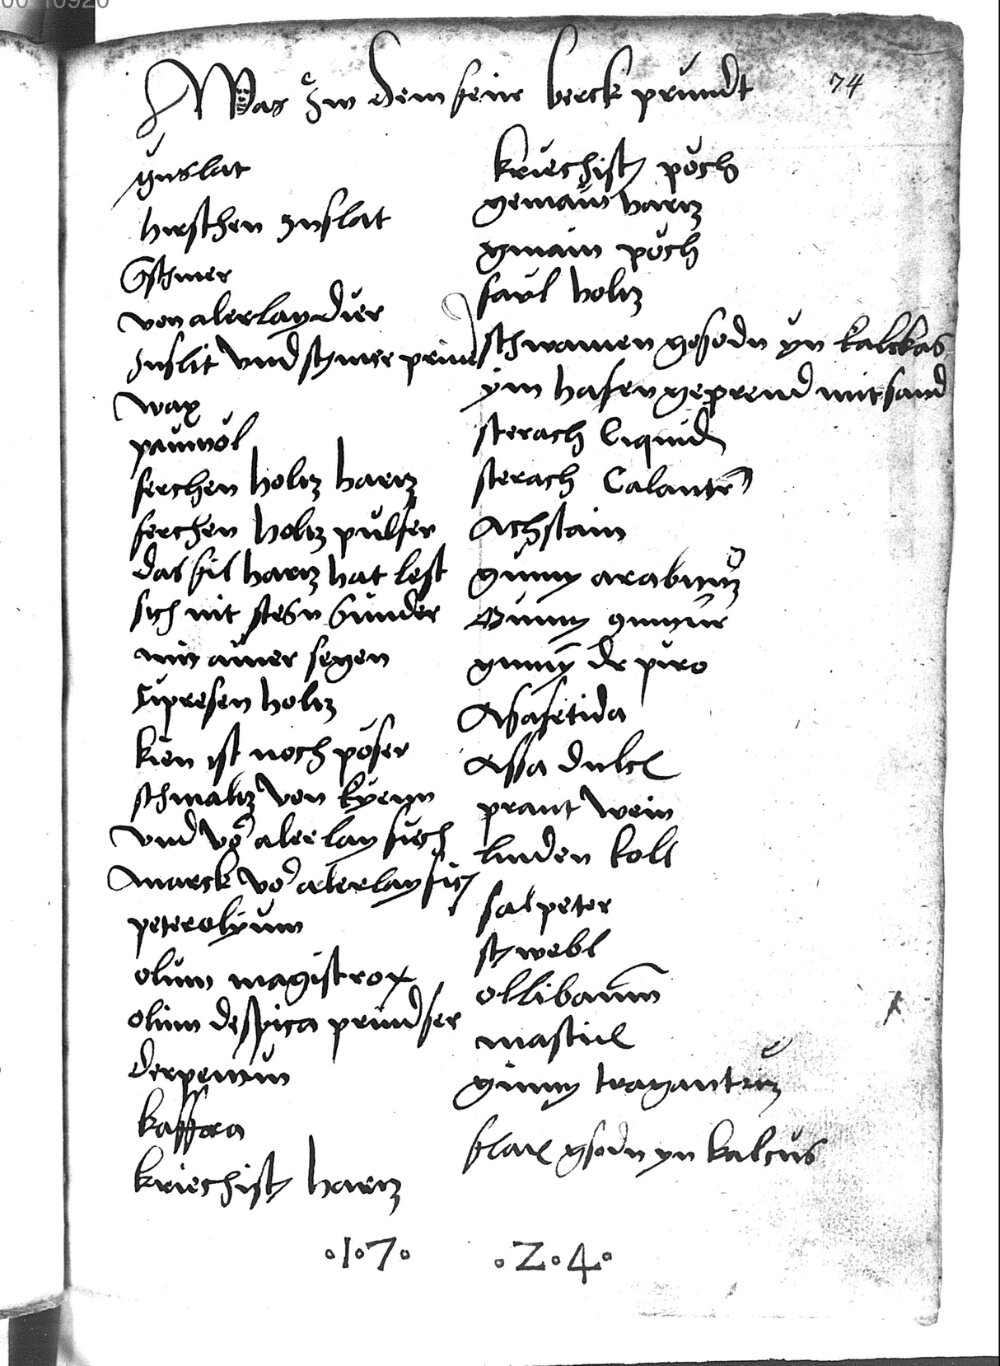 74
Was zw dem feir berck prundt
ynslat
hirschen ynslat
Gschmer
von alerlay dier
ynslit vnd schmer prind
wax
pamwol
ferchen holtz hartz
ferchen holtz pulfer
das fil hartz hat lest
sich nit stesn sunder
min ainer segen
Cipresen holtz
kien ist noch poser
schmaltz von kyenn
vnd vo alerlay fisch
Marck vo alerlay fisch
peterolyum
olium magistrox
olium despica prind ser
derpentin
kaffra
kriechisch hartz
kriechisch pöch
gemain hartz
gmain pöch
faul holtz
schwamen gesodn yn kalckas
ym hafen geprend mit sand
sterach liquid
sterach Calantr
Achstain
gumy arabicum
gumy de puro
Asafetida
Assa dulce
prant wein
linden koll
salpeter
schwebl
ollibanum
mastic
gumy tragantum
gsodn yn kalcus
.1.7. .2.4.